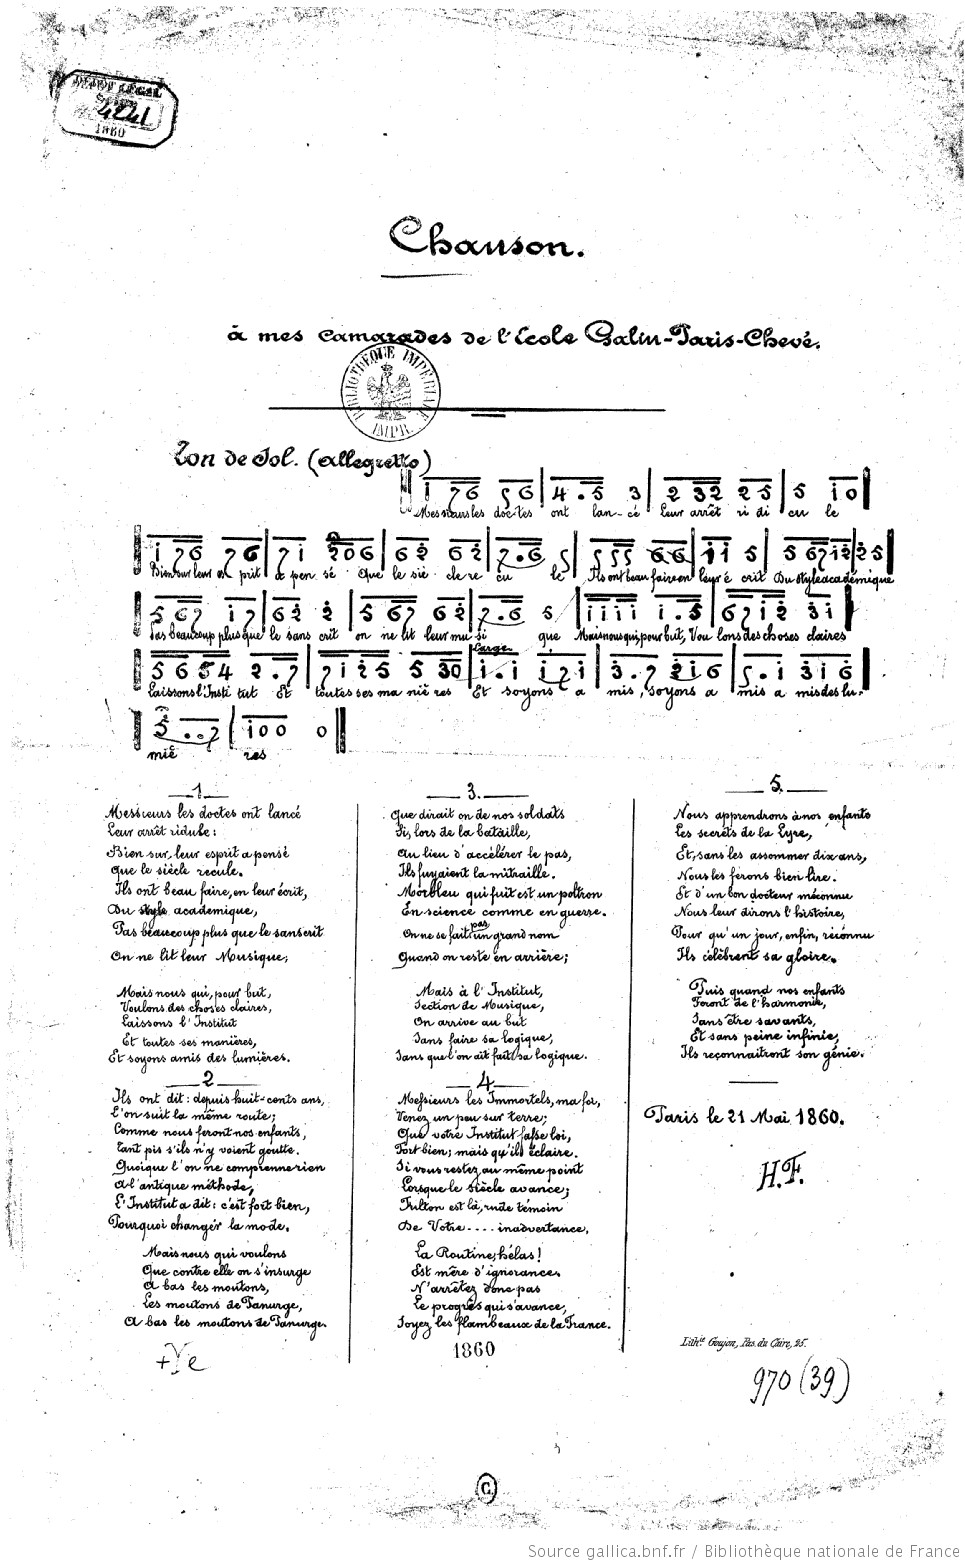 DÉPÔT LÉGAL
Seine
4241
1860
Chanson.
à mes camarades de l'École Galin-Paris-Chevé.
BIBLIOTHÈQUE IMPÉRIALE
IMPR.
Ton de Sol. (Allegretto)
Messieurs les doctes ont lan-cé Leur arrêt ri di cu le
Bien sur leur es prit a pen sé Que le siè cle re cu le Ils ont beau faire en leur é crit Du style académique
Pas beaucoup plus que le sans crit on ne lit leur mu si que Mais nous qui, pour but, Vou lons des choses claires
Large
Laissons l'Insti tut Et toutes ses ma niè res Et soyons a mis, soyons a mis a mis des lu-
miè res
1
Messieurs les doctes ont lancé
Leur arrêt ridule:
Bien sur, leur esprit a pensé
Que le siècle recule.
Ils ont beau faire, en leur écrit,
Du style academique,
Pas beaucoup plus que le sanscrit
On ne lit leur Musique;
Mais nous qui, pour but,
Voulons des choses claires,
Laissons l'Institut
Et toutes ses manières,
Et soyons amis des lumières.
2
Ils ont dit: depuis huit-cents ans,
L'on suit la même route;
Comme nous feront nos enfants,
Tant pis s'ils n'y voient goutte.
Quoique l'on ne comprenne rien
A l'antique méthode,
L'Institut a dit: c'est fort bien,
Pourquoi changer la mode.
Mais nous qui voulons
Que contre elle on s'insurge
A bas les moutons,
Les moutons de Panurge,
A bas les moutons de Panurge.
3.
Que dirait on de nos soldats
Si, lors de la bataille,
Au lieu d'accélérer le pas,
Ils fuyaient la mitraille.
Morbleu qui fuit est un poltron
En science comme en guerre.
On ne se fait pas un grand nom
Quand on reste en arrière;
Mais à l'Institut,
Section de Musique,
On arrive au but
Sans faire sa logique,
Sans que l'on ait fait sa logique.
4
Messieurs les Immortels, ma foi,
Venez un peu sur terre;
Que votre Institut fasse loi,
Fort bien; mais qu'il éclaire.
Si vous restez au même point
Lorsque le Siècle avance;
Fulton est là, rude témoin
De Votre .... inadvertance.
La Routine, hélas!
Est mère d'ignorance.
N'arrêtez donc pas
Le progrès qui s'avance,
Soyez les flambeaux de la France.
1860
5.
Nous apprendrons à nos enfants
Les secrets de la Lyre,
Et, sans les assommer dix ans,
Nous les ferons bien lire.
Et d'un bon docteur méconnu
Nous leur dirons l'histoire,
Pour qu'un jour, enfin, reconnu
Ils célèbrent sa gloire.
Puis quand nos enfants
Feront de l'harmonie,
Sans être savants,
Et sans peine infinie,
Ils reconnaitront son génie.
Paris le 21 Mai 1860.
H.F.
Lith.ie Goujon, Pas. du Caire, 25.
+Ye
970 (39)
Source gallica.bnf.fr / Bibliothèque nationale de France